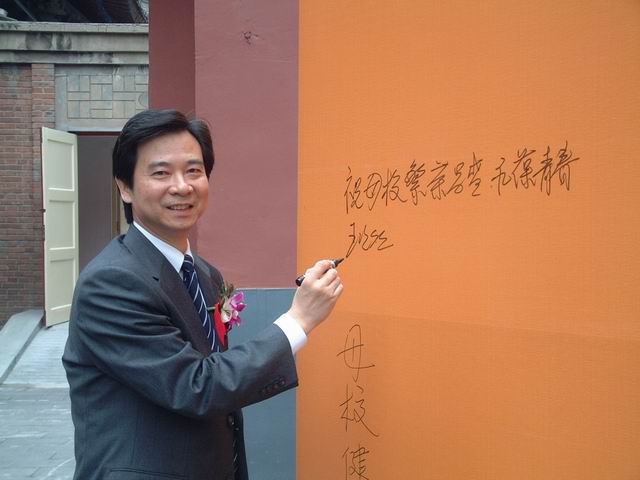 祝母校繁荣昌盛 永葆青春
母校健